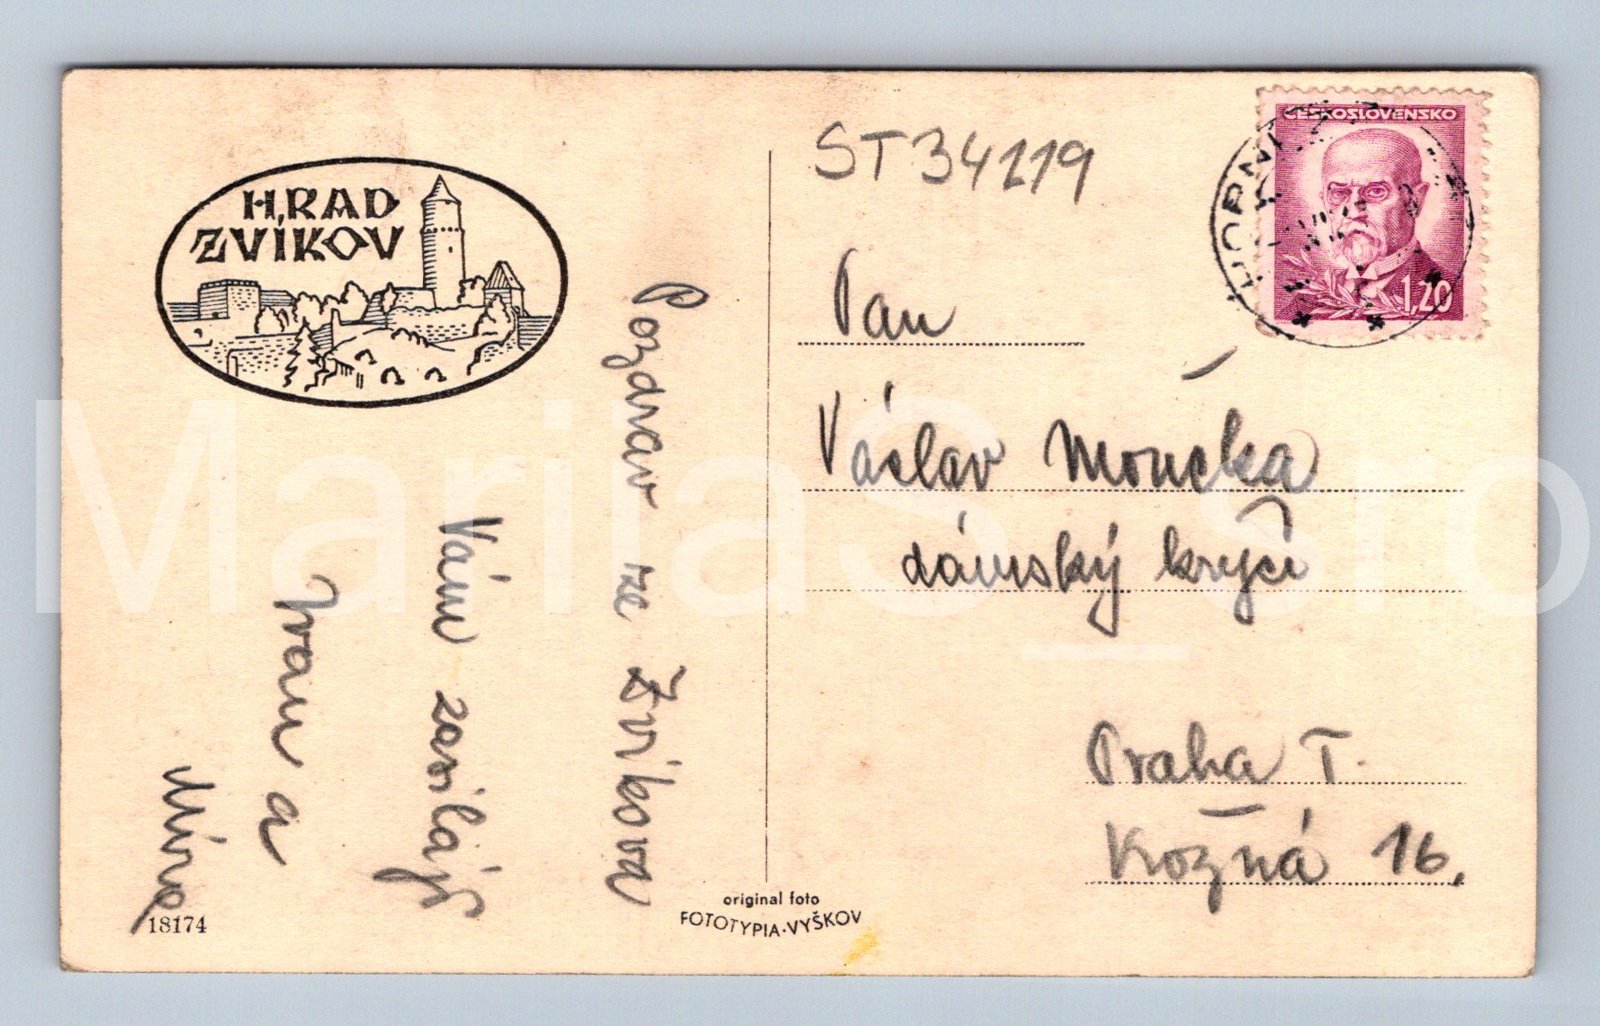 HRAD
ZVÍKOV
Pozdrav ze Zvíkova
Vám zasílají
Ivan a
Mirva
18174
original foto
FOTOTYPIA-VYŠKOV
ST34119
ČESKOSLOVENSKO
1,20
Pan
Václav Moncká
dámský krejčí
Praha I.
Kozná 16.
MarilaS_sro